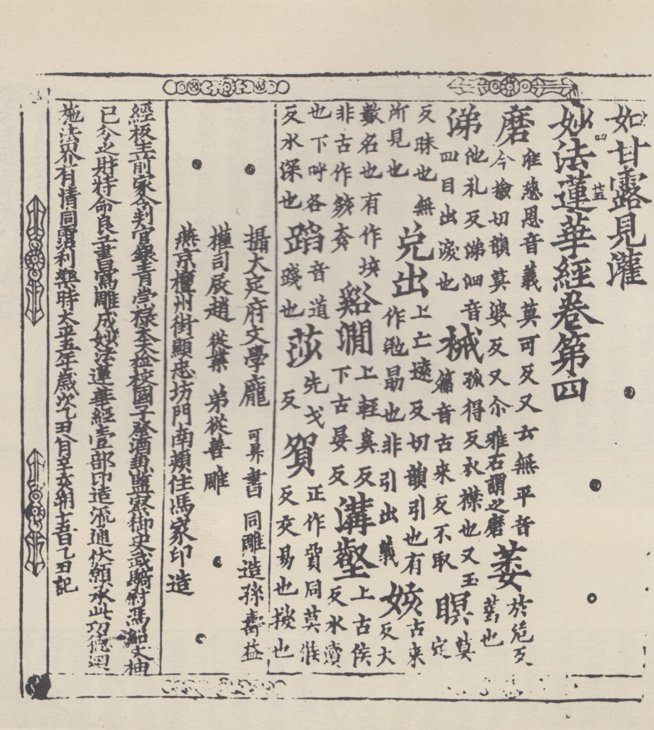 如甘露見灌
妙法蓮華經卷第四
磨准慈恩音義莫可反又云無平音今撿切韻莫婆反又尒雅石謂之磨萎於危反蔫也
涕他礼反涕泗音四目出淚也裓孤得反衣襟也又玉篇音古來反不取瞑莫定
反昧也無所見也兌出上亡反切韻引也有作勗也非引出義姟古來反大
數名也有作垓非古作谿澗上輕奚反下古晏反溝壑上古侯反水瀆
也下呼各反水深也蹈音道踐也莎先戈反貿正作貿同莫候反交易也也
攝大定府文學龐可昇書同雕造孫壽益
權司辰趙從業弟從善雕
燕京檀州街顯忠坊門南頰住馮家印造
經板主前家令判官銀青崇祿大夫撿挍國子祭酒兼監察御史武騎尉馮紹文抽
已分之財特命良工書寫雕成妙法蓮華經壹部印造流通伏願承此功德迴
施法界有情同霑利樂時太平五年歲次乙丑八月辛亥朔十五日乙丑記